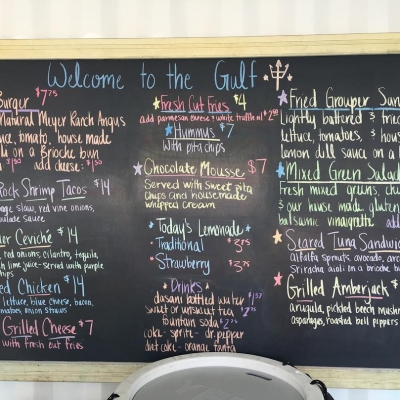 Welcome to the Gulf
Burger $7.75
Natural Meyer Ranch Angus
tomato, house made
on a Brioche bun
add cheese:
Rock Shrimp Tacos $14
slaw, red vine onions,
sauce
Ceviché $14
red onions, cilantro, tequila,
lime juice-served with purple
chips
Chicken $14
lettuce, blue cheese, bacon,
tomatoes, onion straws
Grilled Cheese $7
with fresh cut fries
Fresh Cut Fries $4
add parmesan cheese & white truffle oil
Hummus $7
With pita chips
Chocolate Mousse $7
Served with sweet pita
Chips and housemade
whipped cream
Today's Lemonade
Traditional
Strawberry
Drinks
dasani bottled water
sweet or unsweet tea
fountain soda
coke - sprite - dr. pepper
diet coke - orange fanta
Fried Grouper
lightly battered & fried
lettuce, tomatoes, & house
lemon dill sauce on a
Mixed Green Salad
Fresh mixed greens,
& our house made
balsamic vinaigrette
Seared Tuna Sandwich
alfalfa sprouts, avocado,
Sriracha aioli on a brioche
Grilled Amberjack $
arugula, pickled beech
asparagus, roasted bell peppers